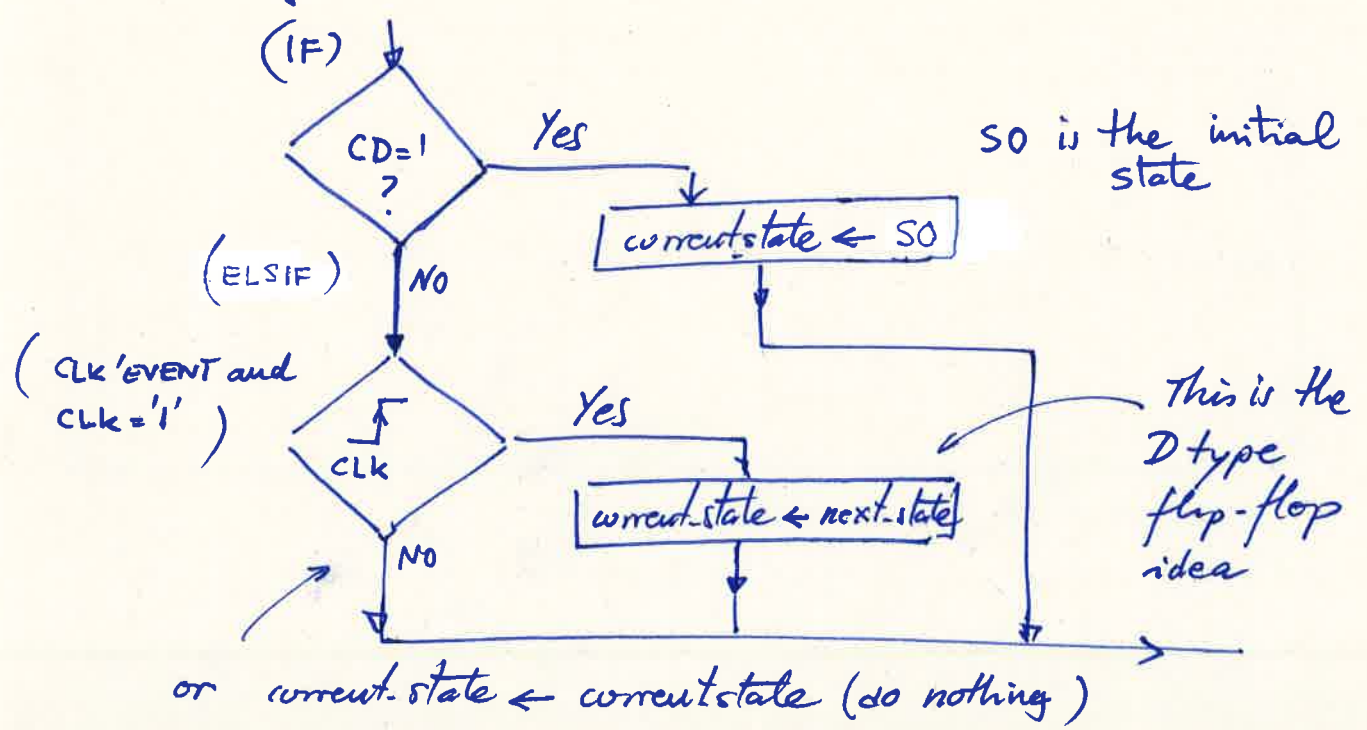 (IF)
CD=1
?
Yes
SO is the initial
state
currentstate ← SO
(ELSIF)
NO
(CLK'EVENT and
CLK='1')
CLK
Yes
This is the
D type
flip-flop
idea
current_state ← next_state
NO
or current_state ← currentstate (do nothing)